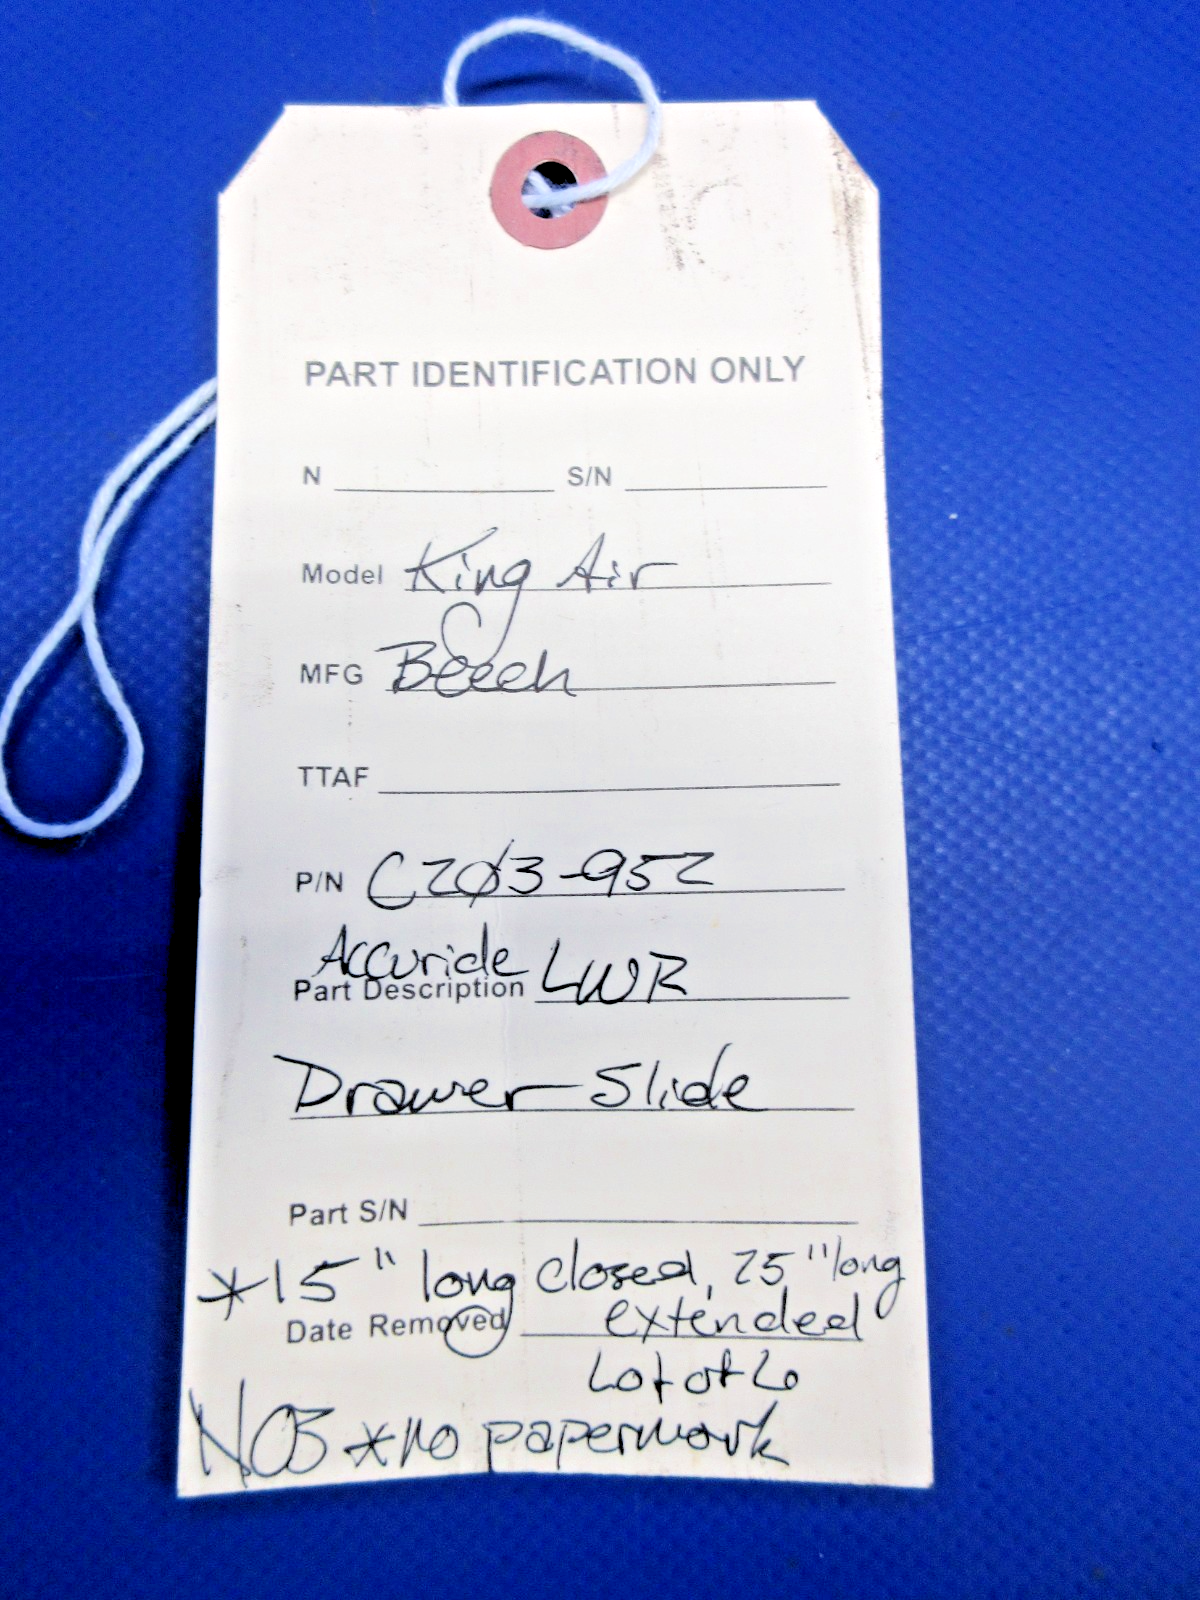 PART IDENTIFICATION ONLY
N S/N
Model King Air
MFG Beech
TTAF
P/N C2Ø3-952
Accuride LWR
Part Description
Drawer Slide
Part S/N
*15" long closed, 25" long
Date Removed extended
Lot of 6
NOS *no paperwork